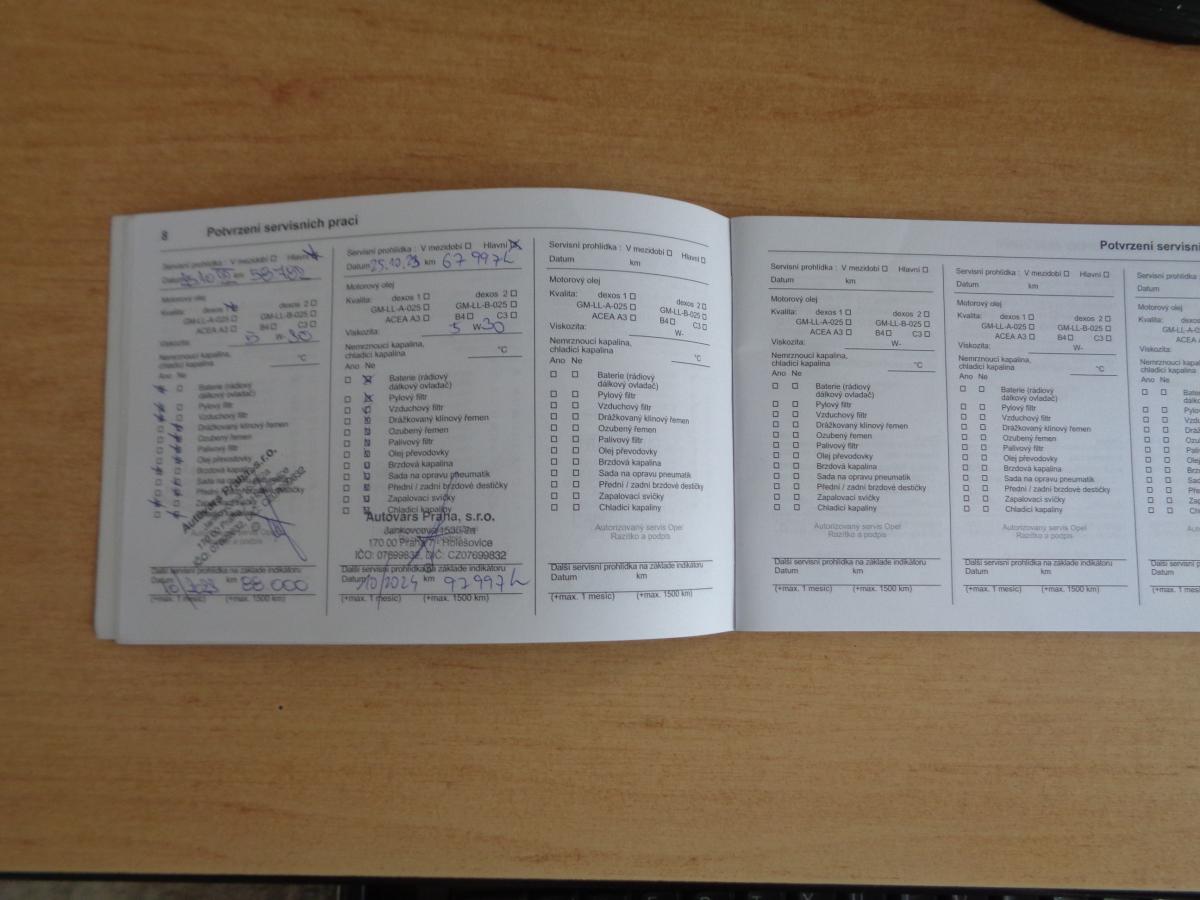 8 Potvrzení servisních prací
Servisní prohlídka : V mezidobí Hlavní
Datum km 58780
Motorový olej
Kvalita: dexos 1 dexos 2
GM-LL-A-025 GM-LL-B-025
ACEA A3 B4 C3
Viskozita: 5 W- 30
Nemrznoucí kapalina,
chladicí kapalina °C
Ano Ne
Baterie (rádiový
dálkový ovladač)
Pylový filtr
Vzduchový filtr
Drážkovaný klínový řemen
Ozubený řemen
Palivový filtr
Olej převodovky
Brzdová kapalina
Sada na opravu
Přední / zadní brzdové destičky
Autovars Praha, s.r.o.
Další servisní prohlídka na základě indikátoru
Datum 10/2023 km 88.000
(+max. 1 měsíc) (+max. 1500 km)
Servisní prohlídka : V mezidobí Hlavní
Datum 25.10.23 km 67997
Motorový olej
Kvalita: dexos 1 dexos 2
GM-LL-A-025 GM-LL-B-025
ACEA A3 B4 C3
Viskozita: 5 W- 30
Nemrznoucí kapalina,
chladicí kapalina °C
Ano Ne
Baterie (rádiový
dálkový ovladač)
Pylový filtr
Vzduchový filtr
Drážkovaný klínový řemen
Ozubený řemen
Palivový filtr
Olej převodovky
Brzdová kapalina
Sada na opravu pneumatik
Přední / zadní brzdové destičky
Zapalovací svíčky
Chladicí kapaliny
Autovars Praha, s.r.o.
Jankovcova
170 00 Praha 7 - Holešovice
IČO: 07699832, DIČ: CZ07699832
Další servisní prohlídka na základě indikátoru
Datum 10/2024 km 97997
(+max. 1 měsíc) (+max. 1500 km)
Servisní prohlídka : V mezidobí Hlavní
Datum km
Motorový olej
Kvalita: dexos 1 dexos 2
GM-LL-A-025 GM-LL-B-025
ACEA A3 B4 C3
Viskozita: W-
Nemrznoucí kapalina,
chladicí kapalina °C
Ano Ne
Baterie (rádiový
dálkový ovladač)
Pylový filtr
Vzduchový filtr
Drážkovaný klínový řemen
Ozubený řemen
Palivový filtr
Olej převodovky
Brzdová kapalina
Sada na opravu pneumatik
Přední / zadní brzdové destičky
Zapalovací svíčky
Chladicí kapaliny
Autorizovaný servis Opel
Razítko a podpis
Další servisní prohlídka na základě indikátoru
Datum km
(+max. 1 měsíc) (+max. 1500 km)
Potvrzení servisní
Servisní prohlídka : V mezidobí Hlavní
Datum km
Motorový olej
Kvalita: dexos 1 dexos 2
GM-LL-A-025 GM-LL-B-025
ACEA A3 B4 C3
Viskozita: W-
Nemrznoucí kapalina,
chladicí kapalina °C
Ano Ne
Baterie (rádiový
dálkový ovladač)
Pylový filtr
Vzduchový filtr
Drážkovaný klínový řemen
Ozubený řemen
Palivový filtr
Olej převodovky
Brzdová kapalina
Sada na opravu pneumatik
Přední / zadní brzdové destičky
Zapalovací svíčky
Chladicí kapaliny
Autorizovaný servis Opel
Razítko a podpis
Další servisní prohlídka na základě indikátoru
Datum km
(+max. 1 měsíc) (+max. 1500 km)
Servisní prohlídka : V mezidobí Hlavní
Datum km
Motorový olej
Kvalita: dexos 1 dexos 2
GM-LL-A-025 GM-LL-B-025
ACEA A3 B4 C3
Viskozita: W-
Nemrznoucí kapalina,
chladicí kapalina °C
Ano Ne
Baterie (rádiový
dálkový ovladač)
Pylový filtr
Vzduchový filtr
Drážkovaný klínový řemen
Ozubený řemen
Palivový filtr
Olej převodovky
Brzdová kapalina
Sada na opravu pneumatik
Přední / zadní brzdové destičky
Zapalovací svíčky
Chladicí kapaliny
Autorizovaný servis Opel
Razítko a podpis
Další servisní prohlídka na základě indikátoru
Datum km
(+max. 1 měsíc) (+max. 1500 km)
Servisní prohlídka
Datum
Motorový olej
Kvalita:
GM-LL-A
ACEA A
Viskozita:
Nemrznoucí kapalin
chladicí kapalina
Ano Ne
Bater
dálko
Pylo
Vzdu
Dráž
Ozu
Pali
Olej
Brz
Sad
Pře
Zap
Chl
Další servisní p
Datum
(+max. 1 měs